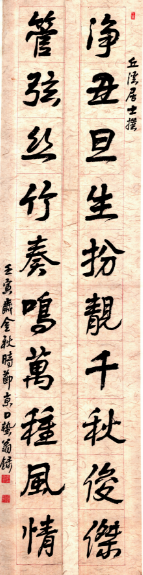 丘溪居士撰
净丑旦生扮靓千秋俊傑
管弦丝竹奏鳴萬種風情
壬寅金秋時節京口